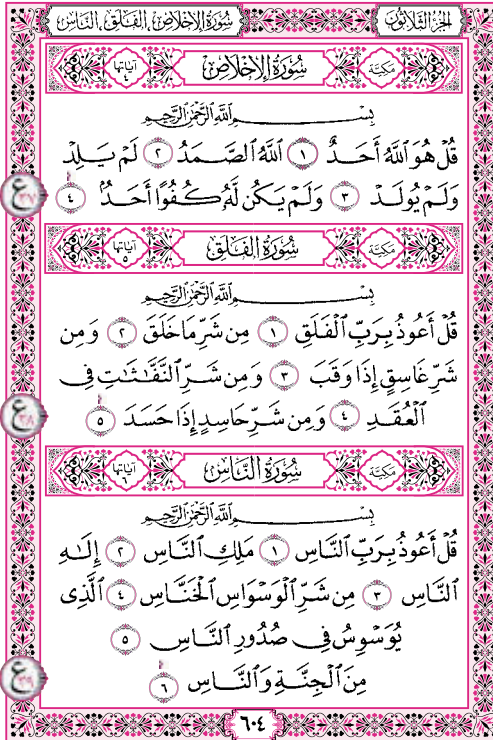 الجزء الثلاثون سورة الإخلاص، الفلق، الناس
مكية سورة الإخلاص آياتها ٤
بِسْمِ اللَّهِ الرَّحْمَٰنِ الرَّحِيمِ
قُلْ هُوَ اللَّهُ أَحَدٌ ١ اللَّهُ الصَّمَدُ ٢ لَمْ يَلِدْ
وَلَمْ يُولَدْ ٣ وَلَمْ يَكُن لَّهُ كُفُوًا أَحَدٌ ٤
ع ٣٧
مكية سورة الفلق آياتها ٥
بِسْمِ اللَّهِ الرَّحْمَٰنِ الرَّحِيمِ
قُلْ أَعُوذُ بِرَبِّ الْفَلَقِ ١ مِن شَرِّ مَا خَلَقَ ٢ وَمِن
شَرِّ غَاسِقٍ إِذَا وَقَبَ ٣ وَمِن شَرِّ النَّفَّاثَاتِ فِي
الْعُقَدِ ٤ وَمِن شَرِّ حَاسِدٍ إِذَا حَسَدَ ٥
ع ٣٨
مكية سورة الناس آياتها ٦
بِسْمِ اللَّهِ الرَّحْمَٰنِ الرَّحِيمِ
قُلْ أَعُوذُ بِرَبِّ النَّاسِ ١ مَلِكِ النَّاسِ ٢ إِلَٰهِ
النَّاسِ ٣ مِن شَرِّ الْوَسْوَاسِ الْخَنَّاسِ ٤ الَّذِي
يُوَسْوِسُ فِي صُدُورِ النَّاسِ ٥
مِنَ الْجِنَّةِ وَالنَّاسِ ٦
ع ٣٩
٦٠٤